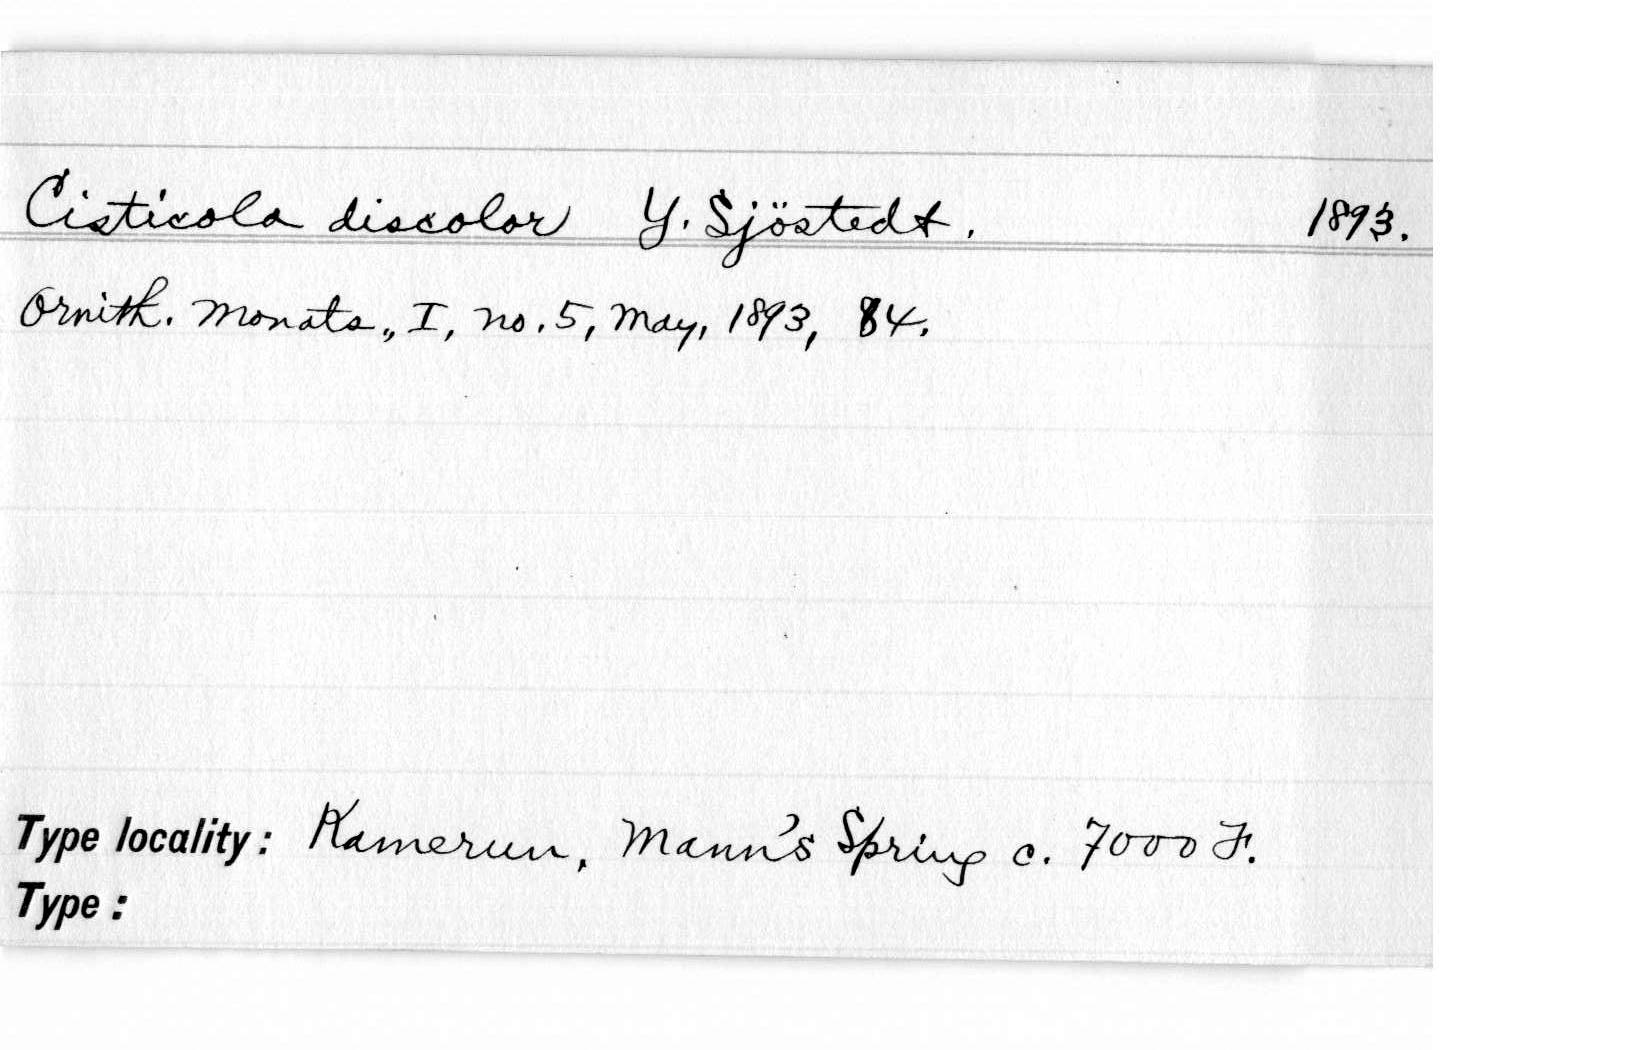 Cisticola discolor Y. Sjöstedt. 1893.
Ornith. Monats., I, no. 5, May, 1893, 84.
Type locality: Kamerun, Mann's Spring c. 7000 F.
Type: